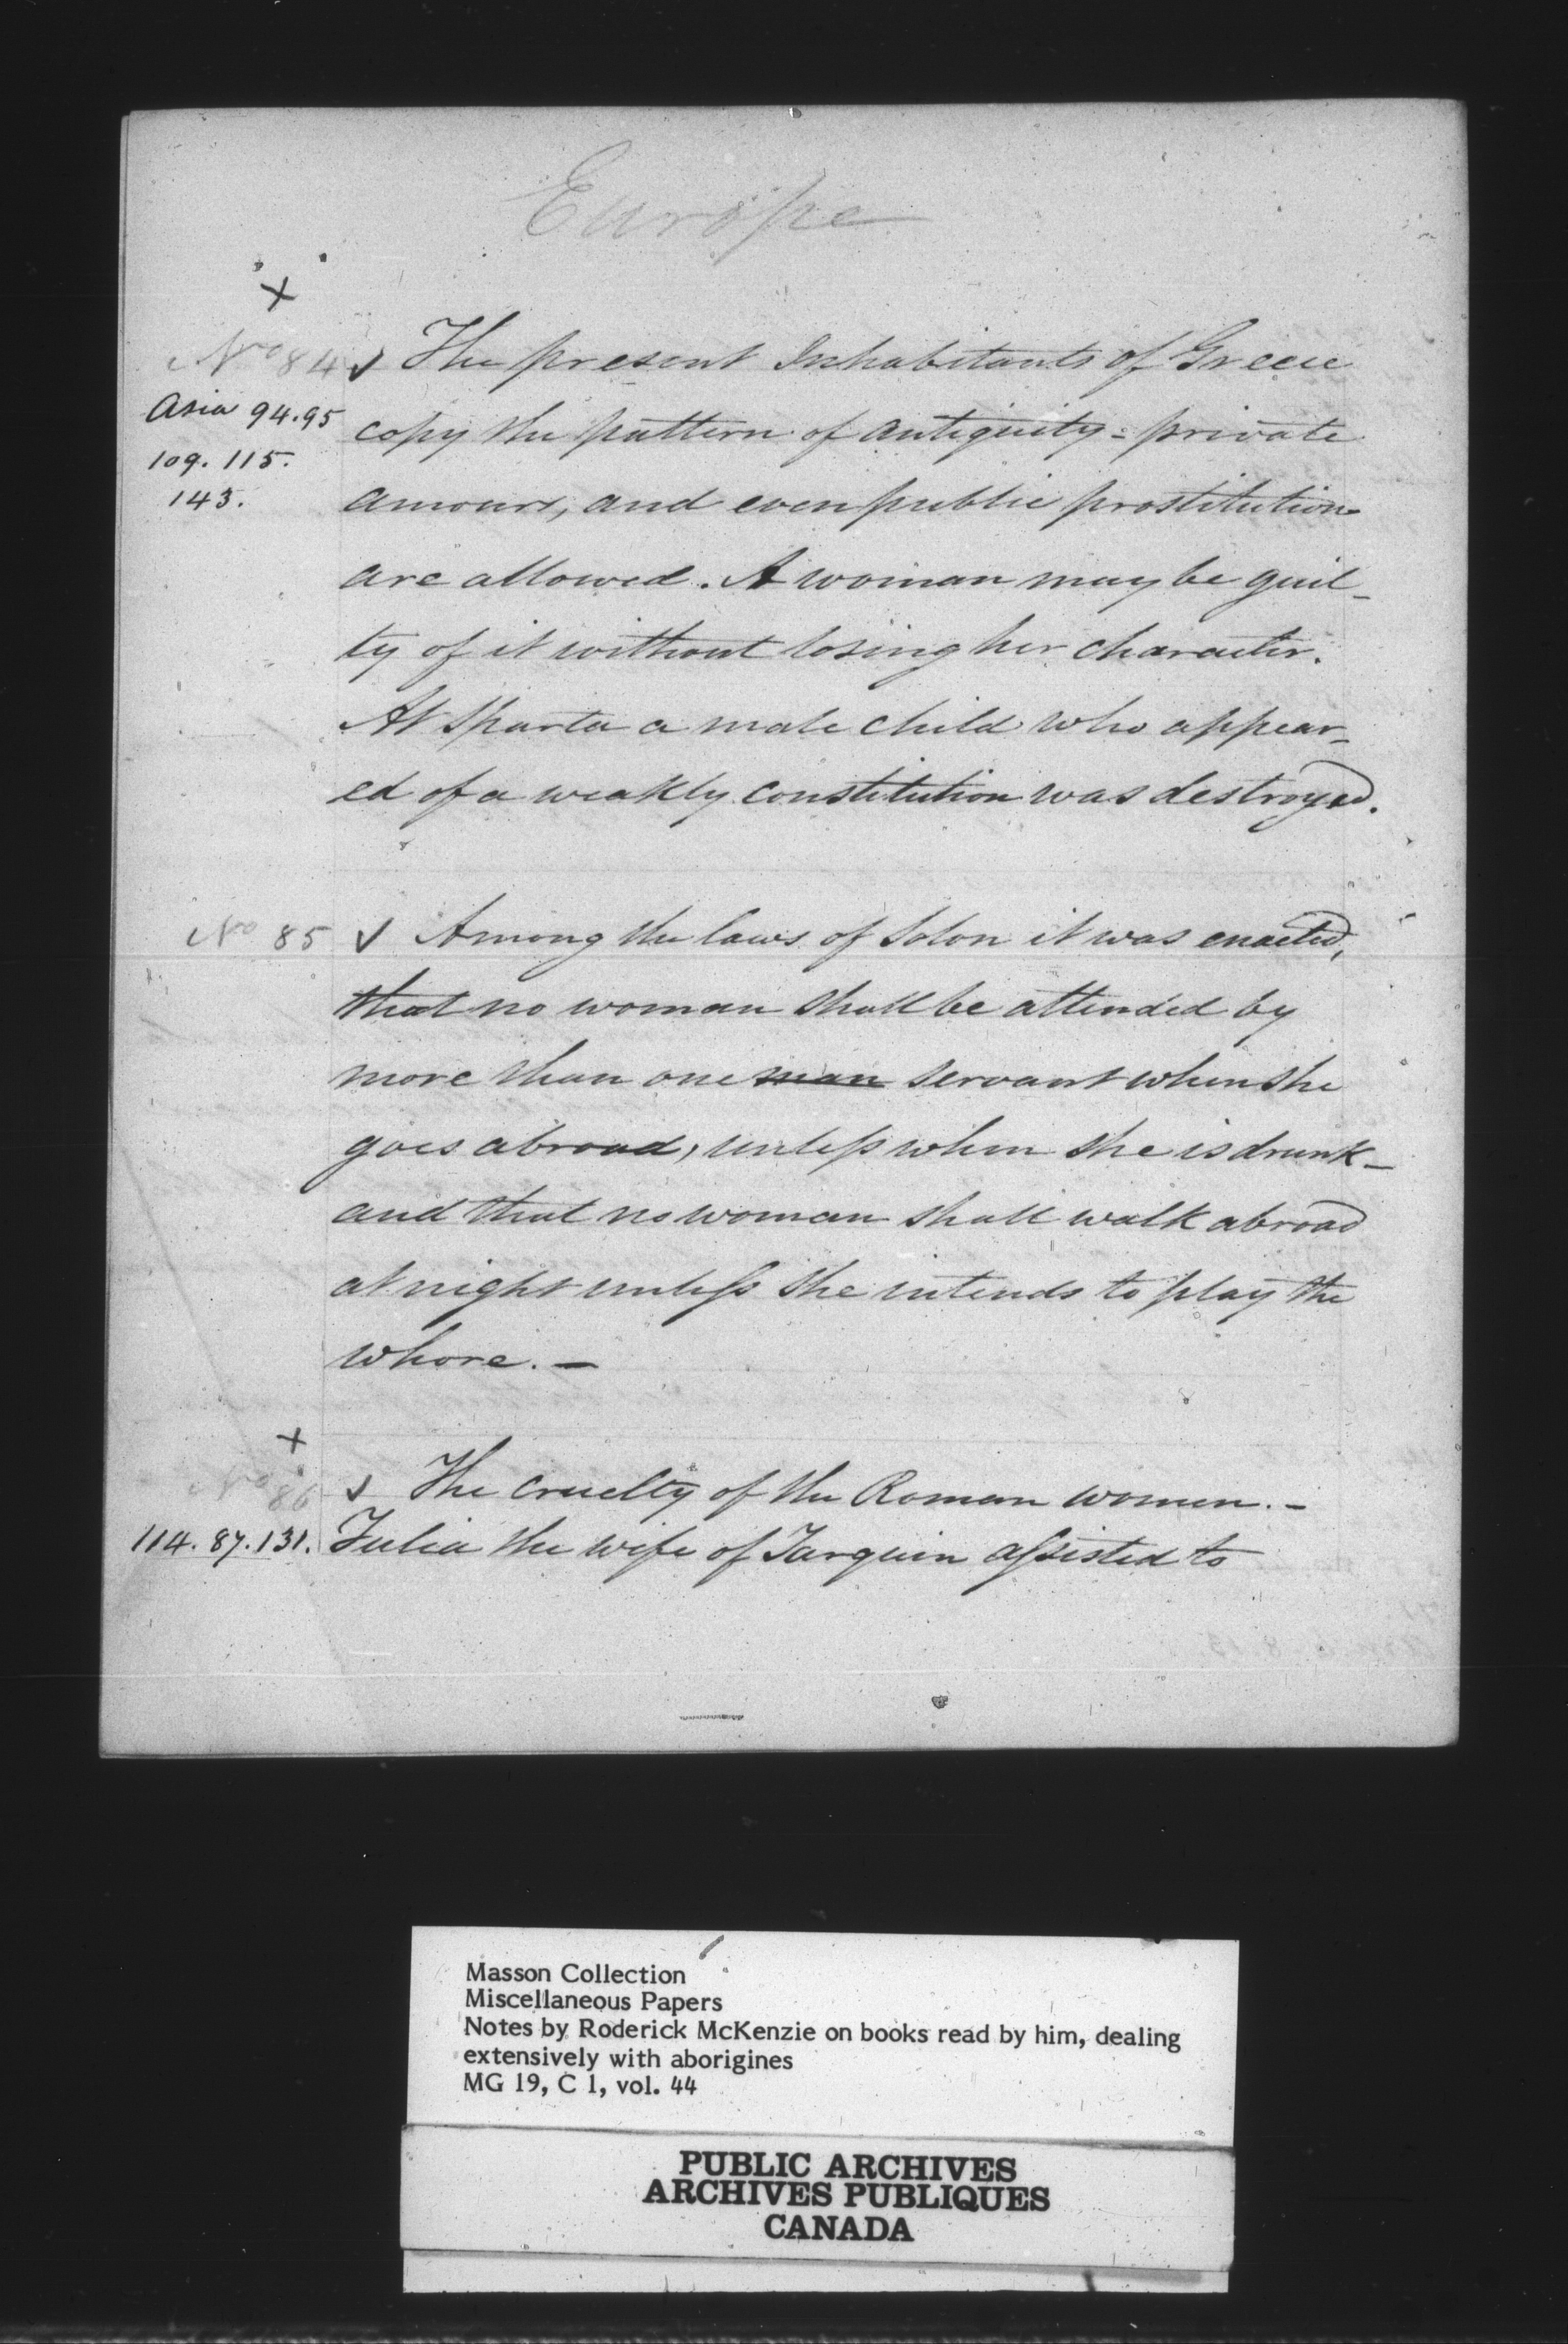 Europe
×
No 84 ✓ The present Inhabitants of Greece
Asia 94.95
copy the pattern of antiquity = private
109. 115.
143.
amours, and even public prostitution
are allowed. A woman may be guil-
ty of it without losing her character.
At Sparta a male child who appear-
ed of a weakly constitution was destroyed.
No 85 ✓ Among the laws of Solon it was enacted,
that no woman shall be attended by
more than one man servant when she
goes abroad, unless when she is drunk-
and that no woman shall walk abroad
at night unless she intends to play the
whore. -
+
No 86 ✓ The cruelty of the Roman women. -
114. 87. 131. Tulia the wife of Tarquin assisted to
Masson Collection
Miscellaneous Papers
Notes by Roderick McKenzie on books read by him, dealing
extensively with aborigines
MG 19, C 1, vol. 44
PUBLIC ARCHIVES
ARCHIVES PUBLIQUES
CANADA